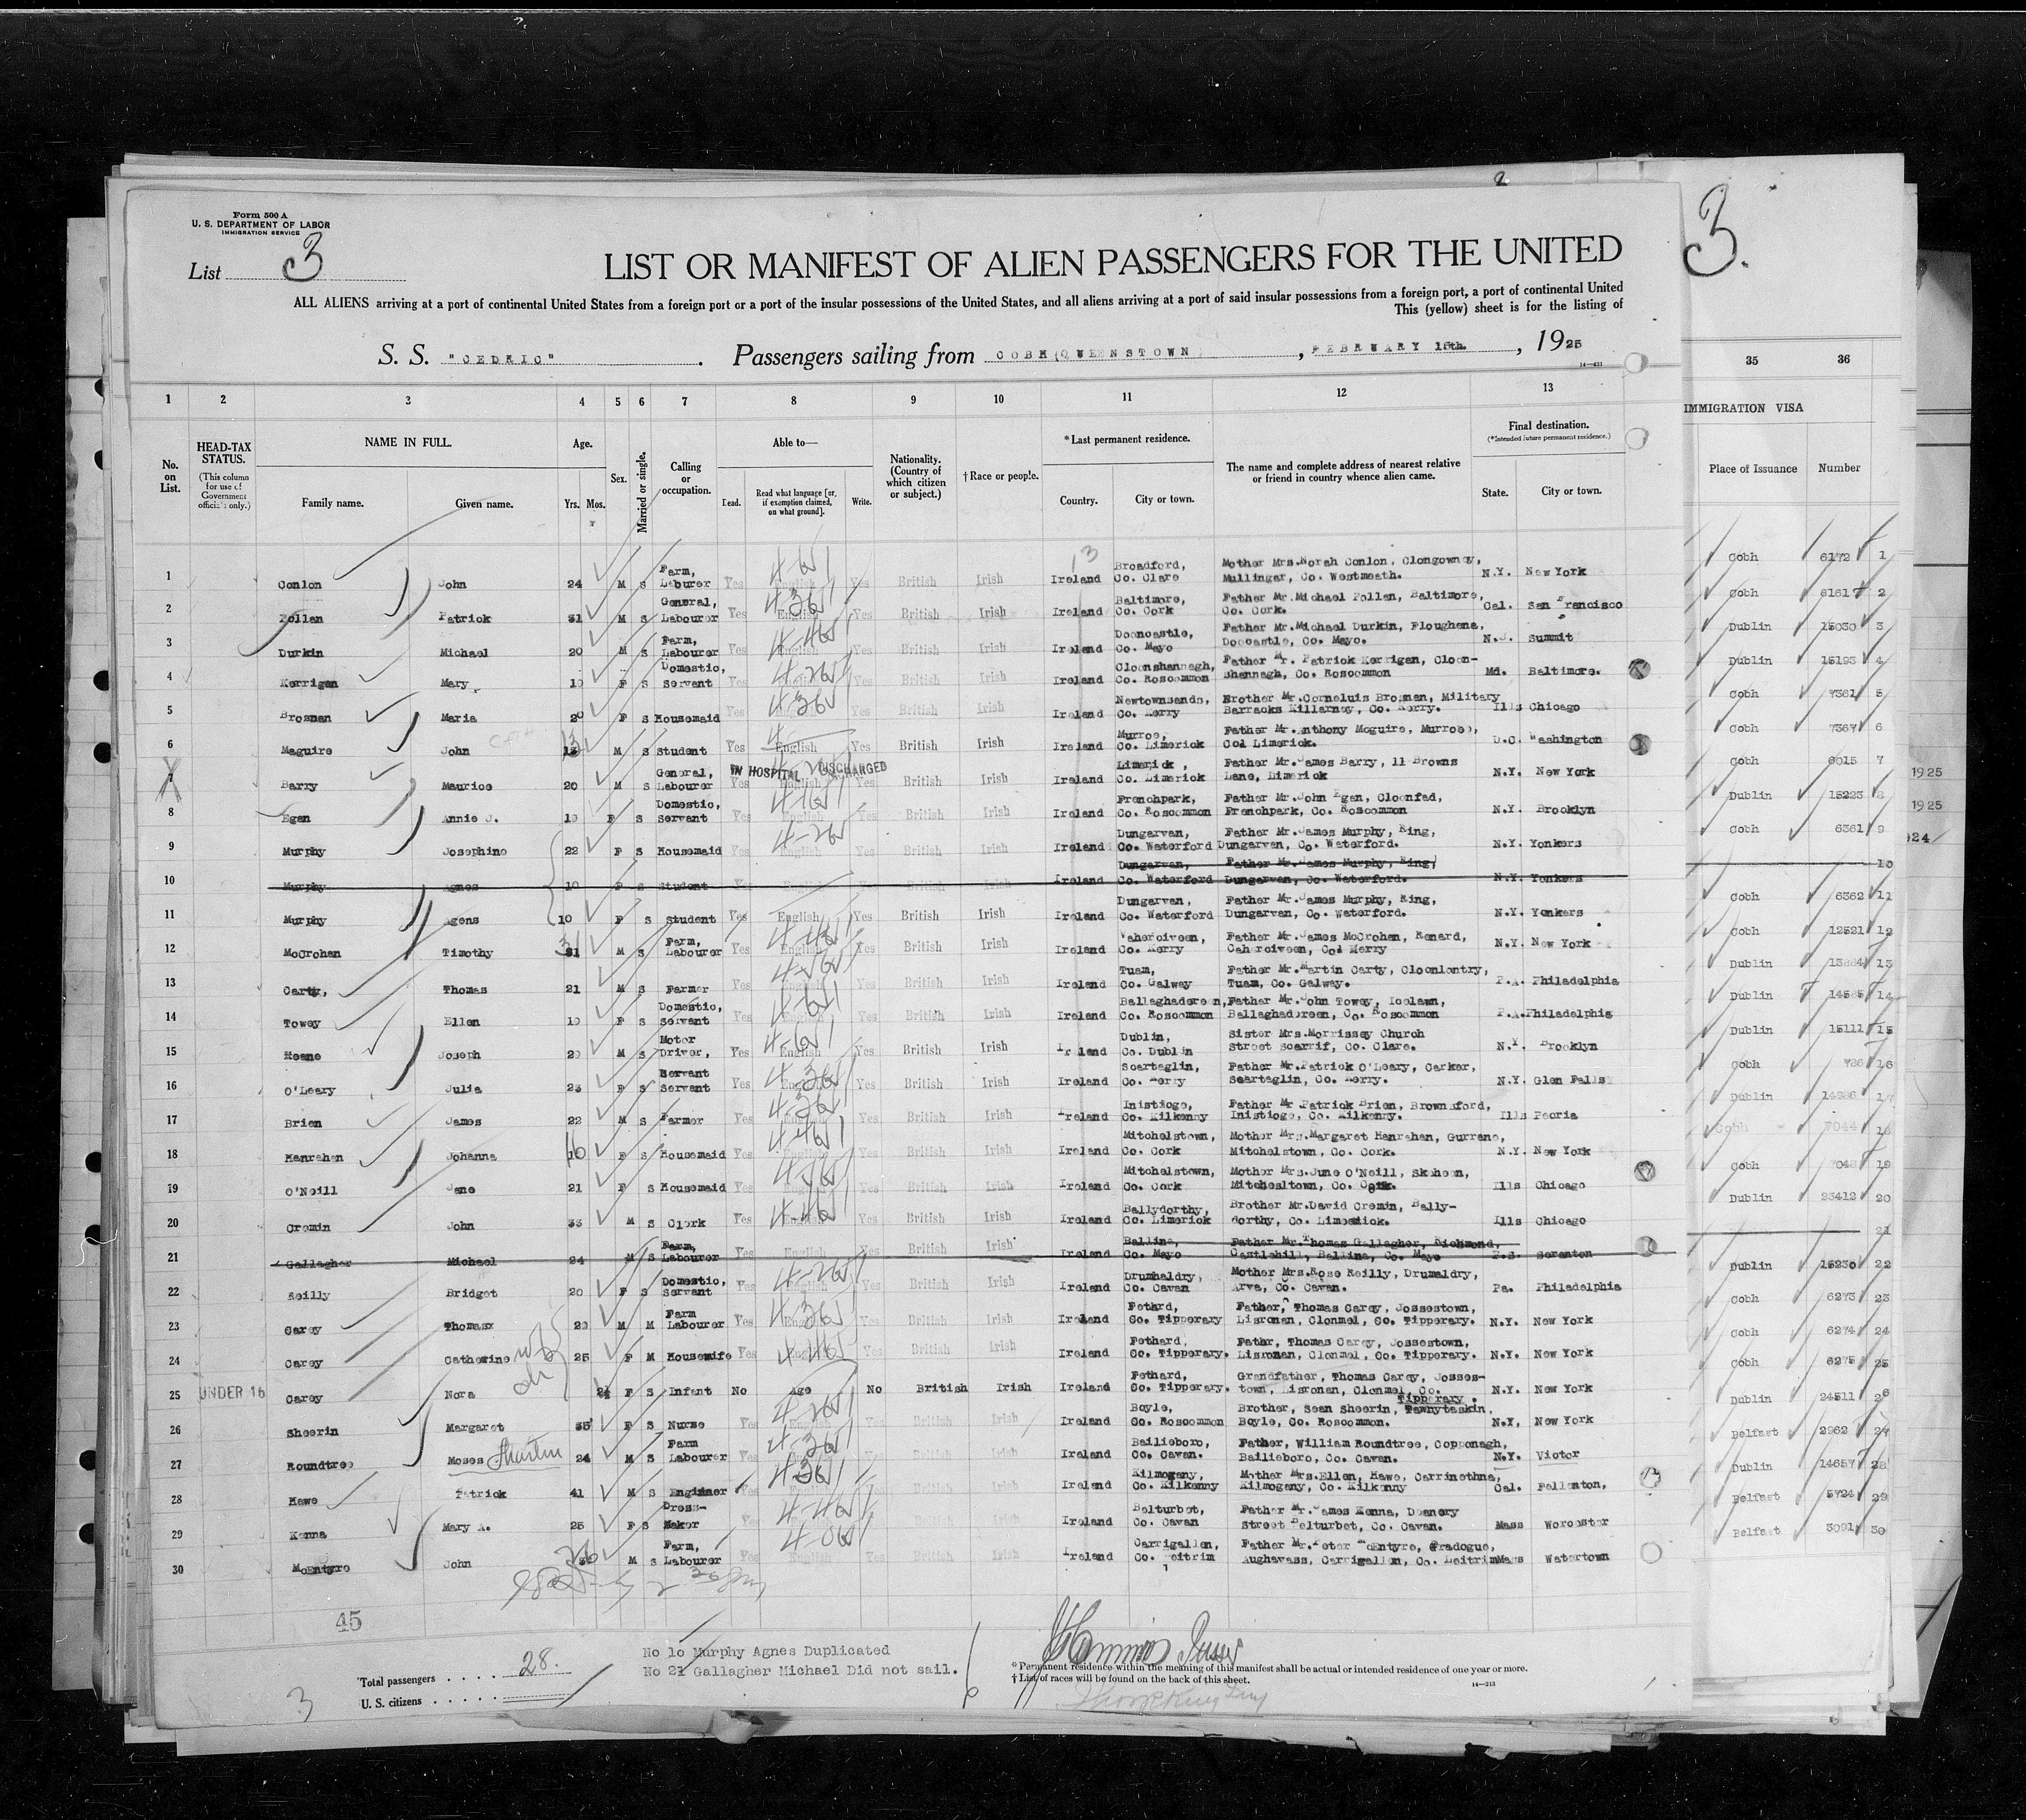 Form 500 A
U. S. DEPARTMENT OF LABOR
IMMIGRATION SERVICE
List 3
3.
LIST OR MANIFEST OF ALIEN PASSENGERS FOR THE UNITED
ALL ALIENS arriving at a port of continental United States from a foreign port or a port of the insular possessions of the United States, and all aliens arriving at a port of said insular possessions from a foreign port, a port of continental United
This (yellow) sheet is for the listing of
S. S. "CEDRIC". Passengers sailing from COBH(QUEENSTOWN), FEBRUARY 15th., 1925
1 2 3 4 5 6 7 8 9 10 11 12 13 35 36
No. on List.
HEAD-TAX STATUS.
(This column for use of Government officials only.)
NAME IN FULL.
Family name. Given name.
Age.
Yrs. Mos.
Sex.
Married or single.
Calling or occupation.
Able to—
Read what language [or, if exemption claimed, on what ground].
Write.
Nationality. (Country of which citizen or subject.)
† Race or people.
* Last permanent residence.
Country. City or town.
The name and complete address of nearest relative or friend in country whence alien came.
Final destination.
(*Intended future permanent residence.)
State. City or town.
IMMIGRATION VISA
Place of Issuance Number
1 Conlon John 24 M S Farm, Labourer Yes English Yes British Irish Ireland Broadford, Co. Clare Mother Mrs. Norah Conlon, Clongowney, Mullingar, Co. Westmeath. N.Y. New York Cobh 6172 1
2 Patrick 31 M S General, Labourer Yes English Yes British Irish Ireland Baltimore, Co. Cork Father Mr. Michael Baltimore, Co. Cork. Cal. San Francisco Cobh 2
3 Durkin Michael 20 M S Farm, Labourer Yes English Yes British Irish Ireland Co. Mayo Father Mr. Michael Durkin, Ploughena, Co. Mayo. N.J. Summit Dublin 15030 3
4 Kerrigan Mary F S Domestic, Servant Yes British Irish Ireland Cloonshannagh, Co. Roscommon Father Mr. Patrick Kerrigan, Cloon-shannagh, Co. Roscommon Md. Baltimore. Dublin 15193 4
5 Brosnan Maria 20 F S Housemaid Yes British Irish Ireland Newtownsands, Co. Kerry Brother Mr. Corneluis Brosnan, Military Barracks Killarney, Co. Kerry. Ills Chicago Cobh 7361 5
6 Maguire John M S Student Yes English Yes British Irish Ireland Murroe, Co. Limerick Father Mr. Anthony Moguire, Murroe, Co. Limerick. D.C. Washington Cobh 7367 6
IN HOSPITAL DISCHARGED
7 Barry Maurice 20 M S General, Labourer Yes English Yes British Irish Ireland Limerick, Co. Limerick Father Mr. James Barry, 11 Browns Lane, Limerick N.Y. New York Cobh 6015 7
8 Egan Annie J. 19 F S Domestic, Servant Yes English Yes British Irish Ireland Frenchpark, Co. Roscommon Father Mr. John Egan, Cloonfad, Frenchpark, Co. Roscommon N.Y. Brooklyn Dublin 15223 8
9 Murphy Josephine 22 F S Housemaid Yes English Yes British Irish Ireland Dungarvan, Co. Waterford Father Mr. James Murphy, Ring, Dungarvan, Co. Waterford. N.Y. Yonkers Cobh 6361 9
10 Murphy Agnes 10 F S Student Ireland Dungarvan, Co. Waterford Father Mr. James Murphy, Ring, Dungarvan, Co. Waterford. N.Y. Yonkers 10
11 Murphy Agens 10 F S Student Yes English Yes British Irish Ireland Dungarvan, Co. Waterford Father Mr. James Murphy, Ring, Dungarvan, Co. Waterford. N.Y. Yonkers Cobh 6362 11
12 McCrohan Timothy 31 M S Farm, Labourer Yes English Yes British Irish Ireland Caherciveen, Co. Kerry Father Mr. James McCrohan, Renard, Caherciveen, Co. Kerry N.Y. New York Cobh 12521 12
13 Carty, Thomas 21 M S Farmer Yes British Irish Ireland Tuam, Co. Galway Father Mr. Martin Carty, Cloonlontry, Tuam, Co. Galway. P.A. Philadelphia Dublin 13884 13
14 Towey Ellen 19 F S Domestic, Servant Yes English Yes British Irish Ireland Ballaghadereen, Co. Roscommon Father Mr. John Towey, Ballaghadreen, Co. Roscommon P.A. Philadelphia Dublin 14585 14
15 Keane Joseph 29 M S Motor Driver, Yes English Yes British Irish Ireland Dublin, Co. Dublin Sister Mrs. Morrissey Church Street Scarrif, Co. Clare. N.Y. Brooklyn Dublin 15111 15
16 O'Leary Julia 23 F S Servant Servant Yes British Irish Ireland Scartaglin, Co. Kerry Father Mr. Patrick O'Leary, Carker, Scartaglin, Co. Kerry. N.Y. Glen Falls Cobh 16
17 Brien James 22 M S Farmer Yes British Irish Ireland Inistioge, Co. Kilkenny Father Mr Patrick Brien, Brownsford, Inistioge, Co. Kilkenny. Ills Peoria Dublin 17
18 Hanrahan Johanna F S Housemaid Yes British Irish Ireland Mitchelstown, Co. Cork Mother Mrs. Margaret Hanrahan, Gurrane, Mitchelstown, Co. Cork. N.Y. New York Cobh 7044 18
19 O'Neill Jane 21 F S Housemaid Yes British Irish Ireland Mitchelstown, Co. Cork Mother Mrs. June O'Neill, Skeheen, Mitchesltown, Co. Cork. Ills Chicago Cobh 19
20 Cremin John 33 M S Clerk Yes English Yes British Irish Ireland Ballydorthy, Co. Limerick Brother Mr. David Cremin, Bally-dorthy, Co. Limerick. Ills Chicago Dublin 23412 20
21 Gallagher Michael 24 M S Farm, Labourer Yes English Yes British Irish Ireland Ballina, Co. Mayo Father Mr. Thomas Gallagher, Richmond, Castlehill, Ballina, Co. Mayo Scranton 21
22 Reilly Bridget 20 F S Domestic, Servant Yes English Yes British Irish Ireland Drumhaldry, Co. Cavan Mother Mrs. Rose Reilly, Drumaldry, Arva, Co. Cavan. Pa. Philadelphia Dublin 15230 22
23 Carey Thomas 29 M M Farm Labourer Yes English Yes British Irish Ireland Fethard, Co. Tipperary Father, Thomas Carey, Jossestown, Lisronan, Clonmel, Co. Tipperary. N.Y. New York Cobh 6273 23
24 Carey Catherine 25 F M Housewife Yes British Irish Ireland Fethard, Co. Tipperary. Fathr, Thomas Carey, Jossestown, Lisronan, Clonmel, Co. Tipperary. N.Y. New York Cobh 6274 24
25 UNDER 16 Carey Nora 2½ F S Infant No Age No British Irish Ireland Fethard, Co. Tipperary. Grandfather, Thomas Carey, Josses-town, Lisronan, Clonmel, Co. Tipperary. N.Y. New York Cobh 6275 25
26 Sheerin Margaret 35 F S Nurse Yes English Yes British Irish Ireland Boyle, Co. Roscommon Brother, Sean Sheerin, Tawnytaskin, Boyle, Co. Roscommon. N.Y. New York Dublin 24511 26
27 Roundtree Moses Martin 24 M S Labourer Farm Yes British Irish Ireland Bailieboro, Co. Cavan. Father, William Roundtree, Copponagh, Bailieboro, Co. Cavan. N.Y. Victor Belfast 2962 27
28 Hawe Patrick 41 M S Engineer Ireland Kilmogany, Co. Kilkenny Mother Mrs. Ellen, Hawe, Carrinethna, Kilmogany, Co. Kilkenny Cal. Fallenton, Dublin 14657 28
29 Kenna Mary A. 25 F S Dress-Maker Ireland Belturbet, Co. Cavan Father Mr. James Kenna, Deanery Street Belturbet, Co. Cavan. Mass Worcester Belfast 5724 29
30 McEntyre John 26 M S Farm, Labourer Yes English Yes British Irish Ireland Carrigallen, Co. Leitrim Father Mr. Peter McEntyre, Gradogue, Aughavass, Carrigallen, Co. Leitrim Mass Watertown Belfast 3091 30
1925
1925
45
No 10 Murphy Agnes Duplicated
No 21 Gallagher Michael Did not sail.
Total passengers . . . . . 28.
U. S. citizens . . . . . .
3
* Permanent residence within the meaning of this manifest shall be actual or intended residence of one year or more.
† List of races will be found on the back of this sheet.
14—213